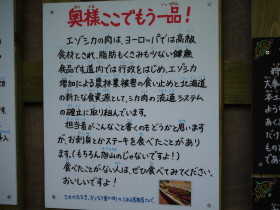 奥様ここでもう一品！
エゾシカの肉は、ヨーロッパでは高級
食材とされ、脂肪もくさみも少ない健康
食品です。道内では行政をはじめ、エゾシカ
増加による農林業被害の食い止めと北海道
の新たな食資源として、シカ肉の流通システム
の確立に取り組んでいます。
担当者がこんなこと書くのもどうかと思います
が、お刺身とかステーキを食べたことがあり
ます。（もちろん飛山のじゃないですよ！）
食べたことがない人は、ぜひ食べてみてください。
おいしいですよ！